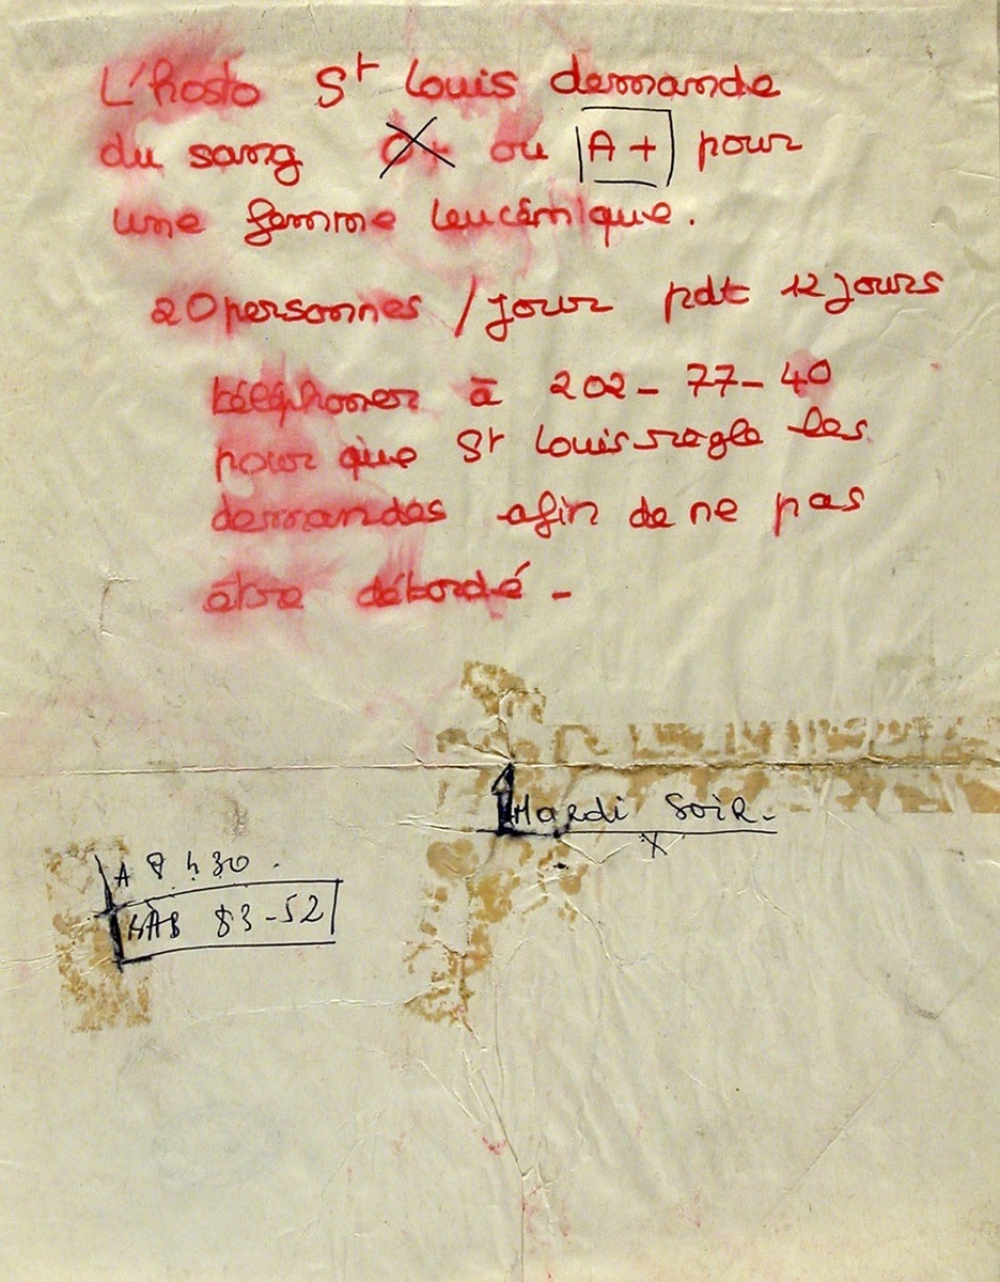 L'hosto St Louis demande
du sang O+ ou A+ pour
une femme leucémique.
20 personnes / jour pdt 12 jours
téléphoner à 202-77-40
pour que St Louis regle les
demandes afin de ne pas
être débordé -
Mardi SoiR.
X
A 8 h 30.
83-52